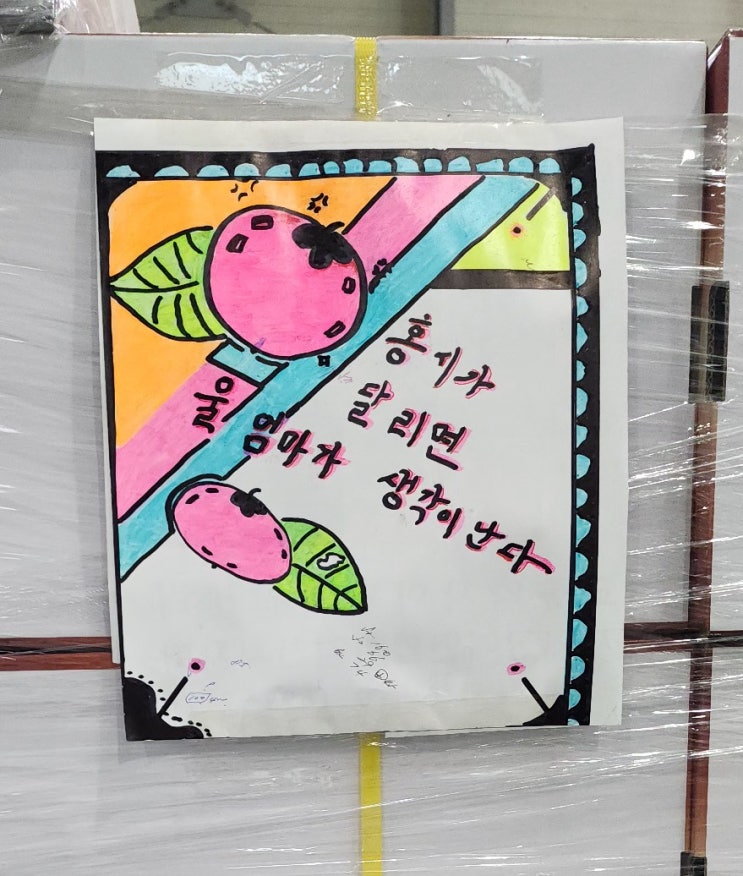 홍시가
달리면
울 엄마가 생각이 난다